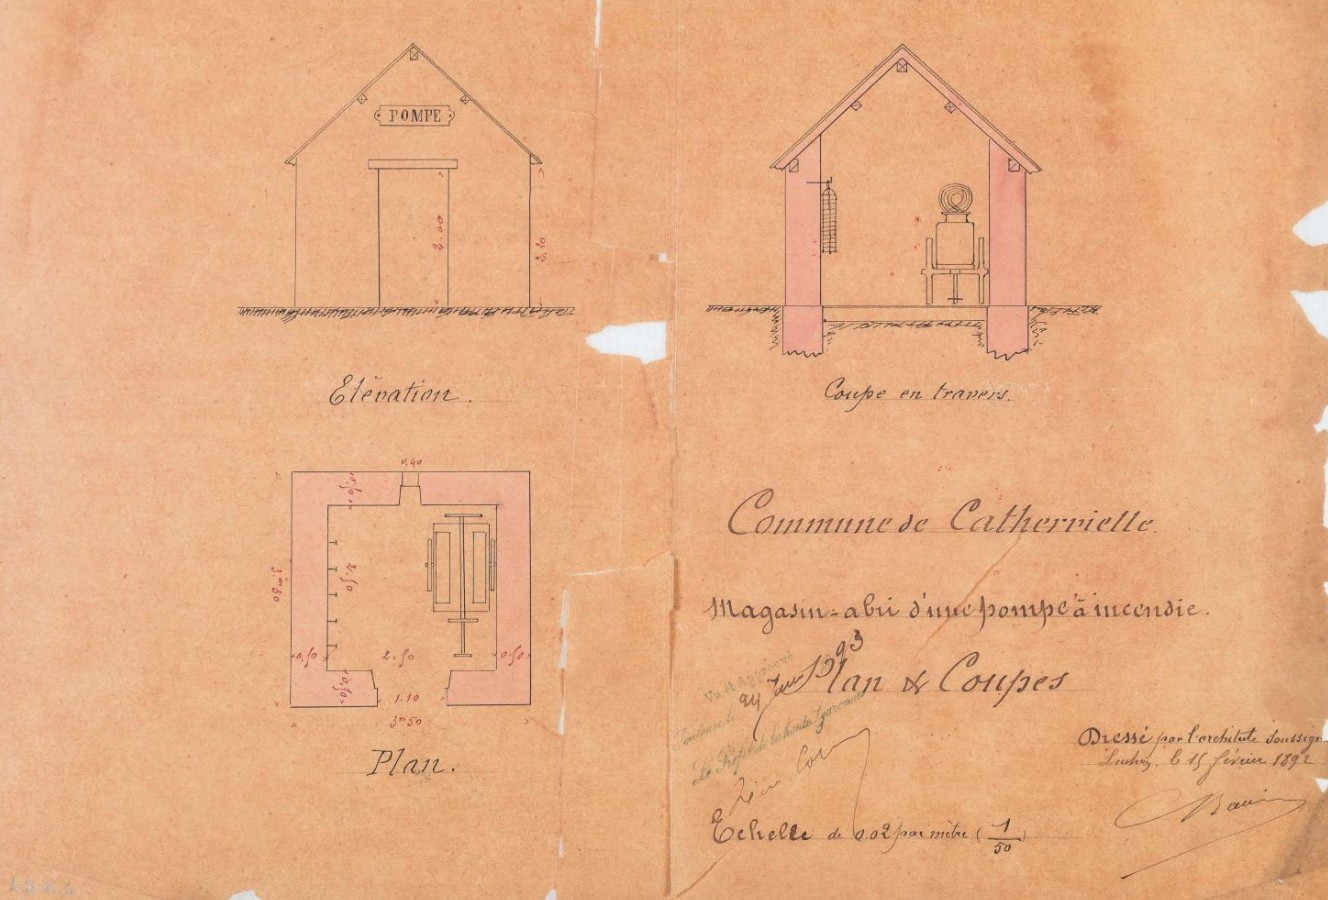 POMPE
2.00
2.20
Elévation.
Coupe en travers.
0.40
0.50
3m50
2.50
0.50
2.50
0.50
0.50
1.10
3m50
Plan.
Commune de Cathervielle.
Magasin-abri d'une pompe à incendie.
Plan & Coupes
Vu et Approuvé
24 1893
Toulouse, le
Le Préfet de la Haute Garonne
Dressé par l'architecte soussign
Luchon, le 15 février 1892
Echelle de 0.02 par mètre (1/50)